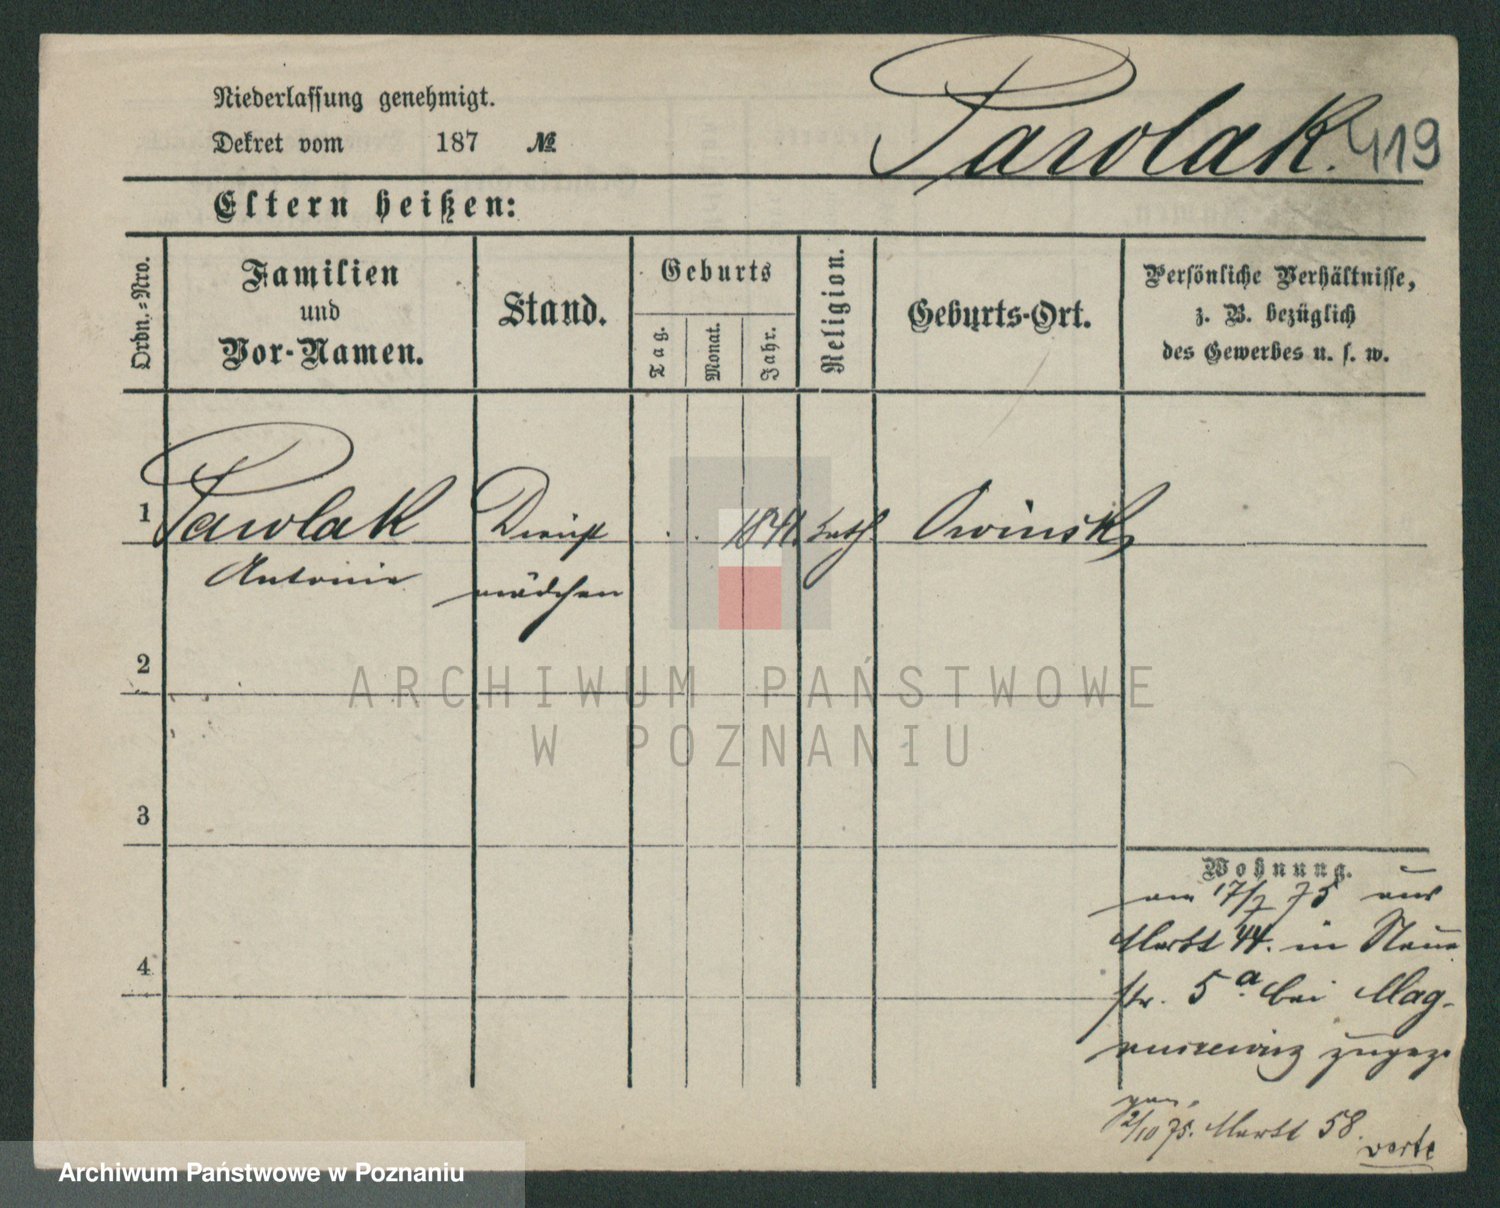 Niederlassung genehmigt.
Dekret vom 187 №
Pawlak. 419
Eltern heißen:
Ordn.-Nro.
Familien
und
Vor-Namen.
Stand.
Geburts
Tag.
Monat.
Jahr.
Religion.
Geburts-Ort.
Persönliche Verhältnisse,
z. B. bezüglich
des Gewerbes u. s. w.
1 Pawlak Dienst . . 1841. kath Owinsk
Antonie mädchen
2
3
4
Wohnung.
am 17/7 75 aus
Markt 44. in Neue
str. 5a. bei Mag-
zugezo
gen.
2/10 75. Markt 58.
verte
ARCHIWUM PAŃSTWOWE
W POZNANIU
Archiwum Państwowe w Poznaniu